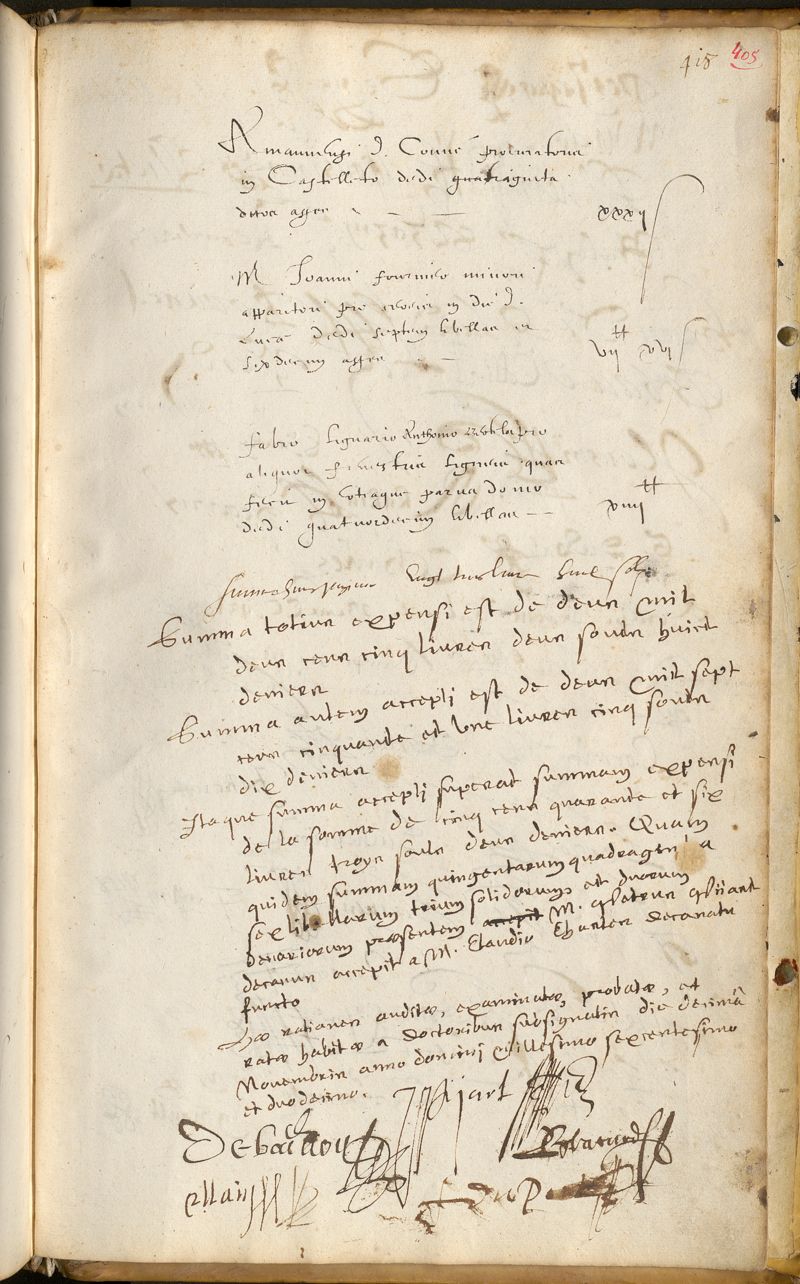 415 405
Amanuensi d. Comè procuratoris
in Castelleto dedi quadraginta
duos asses xxxxij
M Joanni fournier minori
apparitori pro in die d.
Lucæ dedi septem libellas et
sexdecim asses vij tt xvj s
fabro lignario Anthonio pro
aliquot fenestris ligneis quas
fecit in utraque parva domo
dedi quatuordecim libellas xiiij tt
Summa totius expensi est de deux mil
deux cens cinq livres deux soubz huict
deniers
Summa autem accepti est de deux mil sept
cens cinquante et une livres cinq soubz
dix deniers
Itaque summa accepti superat summam expensi
de la somme de cinq cens quarante et six
livres troys soulz deux deniers. Quam
quidem summam quingentarum quadragen
sex libellarum trium solidorum, et duorum
denariorum præsentem accepit M. petrus
decanus accepit a M. Claudio Charles decanatu
functo
Hæ rationes auditæ, examinatæ, probatæ, et
ratæ habitæ a doctoribus subsignatis die decimâ
Novembris anno domini Millesimo sexcentesimo
et duodecimo.
Debaillou